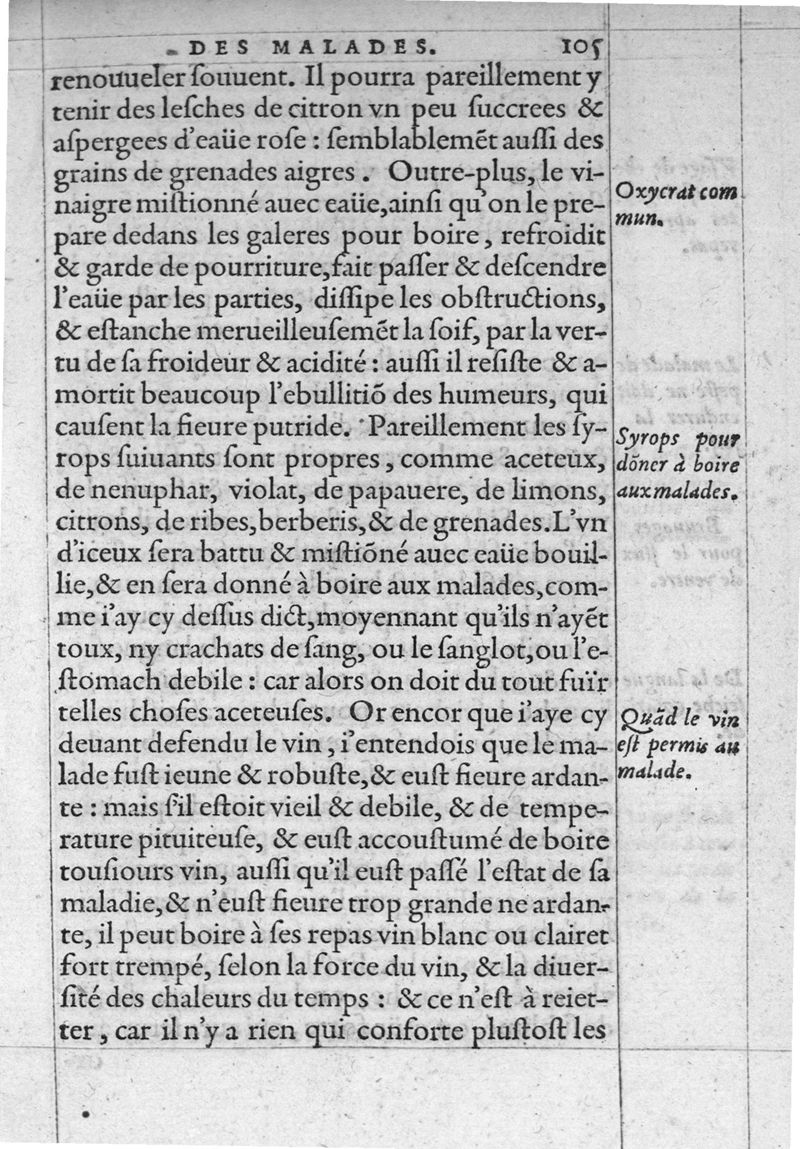 DES MALADES. 105
renouueler ſouuent. Il pourra pareillement y
tenir des leſches de citron vn peu ſuccrees &
aſpergees d'eaüe roſe : ſemblablemẽt auſſi des
grains de grenades aigres. Outre-plus, le vi-
naigre miſtionné auec eaüe, ainſi qu'on le pre-
pare dedans les galeres pour boire, refroidit
& garde de pourriture, fait paſſer & deſcendre
l'eaüe par les parties, diſſipe les obſtructions,
& eſtanche merueilleuſemẽt la ſoif, par la ver-
tu de ſa froideur & acidité : auſſi il reſiſte & a-
mortit beaucoup l'ebullitiõ des humeurs, qui
cauſent la fieure putride. Pareillement les ſy-
rops ſuiuants ſont propres, comme aceteux,
de nenuphar, violat, de papauere, de limons,
citrons, de ribes, berberis, & de grenades. L'vn
d'iceux ſera battu & miſtiõné auec eaüe bouil-
lie, & en ſera donné à boire aux malades, com-
me i'ay cy deſſus dict, moyennant qu'ils n'ayẽt
toux, ny crachats de ſang, ou le ſanglot, ou l'e-
ſtomach debile : car alors on doit du tout fuïr
telles choſes aceteuſes. Or encor que i'aye cy
deuant defendu le vin, i'entendois que le ma-
lade fuſt ieune & robuſte, & euſt fieure ardan-
te : mais ſ'il eſtoit vieil & debile, & de tempe-
rature pituiteuſe, & euſt accouſtumé de boire
touſiours vin, auſſi qu'il euſt paſſé l'eſtat de ſa
maladie, & n'euſt fieure trop grande ne ardan-
te, il peut boire à ſes repas vin blanc ou clairet
fort trempé, ſelon la force du vin, & la diuer-
ſité des chaleurs du temps : & ce n'eſt à reiet-
ter, car il n'y a rien qui conforte pluſtoſt les
Oxycrat com
mun.
Syrops pour
dõner à boire
aux malades.
Quãd le vin
eſt permis au
malade.